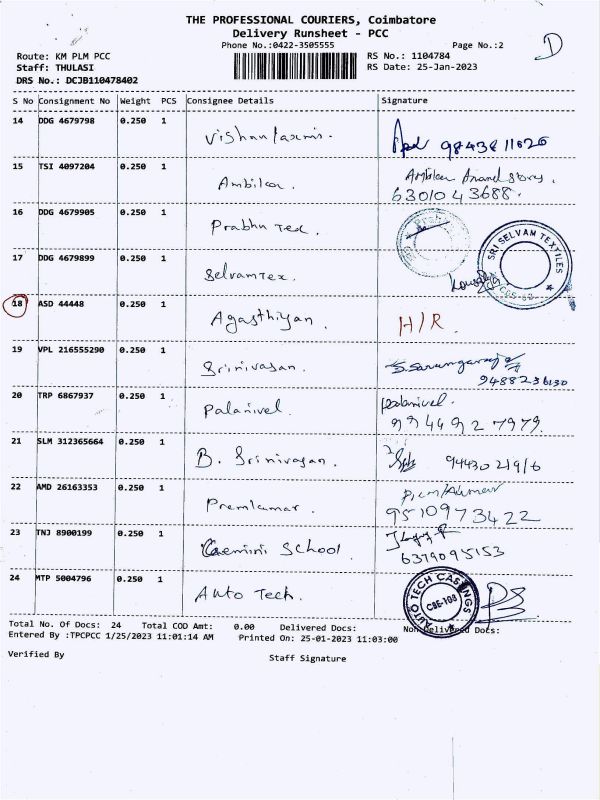 THE PROFESSIONAL COURIERS, Coimbatore
Delivery Runsheet - PCC
Phone No.:0422-3505555
Page No.:2
D
Route: KM PLM PCC
RS No.: 1104784
Staff: THULASI
RS Date: 25-Jan-2023
DRS No.: DCJB110478402
S No Consignment No Weight PCS Consignee Details Signature
14 DDG 4679798 0.250 1 Vishnulaxmi. 9843811626
15 TSI 4097204 0.250 1 Ambika. Ambika Anand stores.
6301043688.
16 DDG 4679905 0.250 1 Prabhu Tex.
17 DDG 4679899 0.250 1 Selvamtex. SRI SELVAM TEXTILES
CBE-62
18 ASD 44448 0.250 1 Agasthiyan. H/R.
19 VPL 216555290 0.250 1 Srinivasan.
9488236130
20 TRP 6867937 0.250 1 Palanivel. Palanivel.
9944927979.
21 SLM 312365664 0.250 1 B. Srinivasan. 9443021916
22 AMD 26163353 0.250 1 Premkumar. Premkumar
9510973422
23 TNJ 8900199 0.250 1 Gemini School.
6379095153
24 MTP 5004796 0.250 1 Auto Tech. AUTO TECH CASTINGS
CBE-108
Total No. Of Docs: 24 Total COD Amt: 0.00 Delivered Docs: Non Delivered Docs:
Entered By :TPCPCC 1/25/2023 11:01:14 AM Printed On: 25-01-2023 11:03:00
Verified By Staff Signature